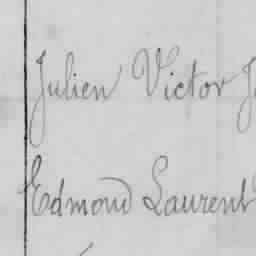 Julien Victor J
Edmond Laurent